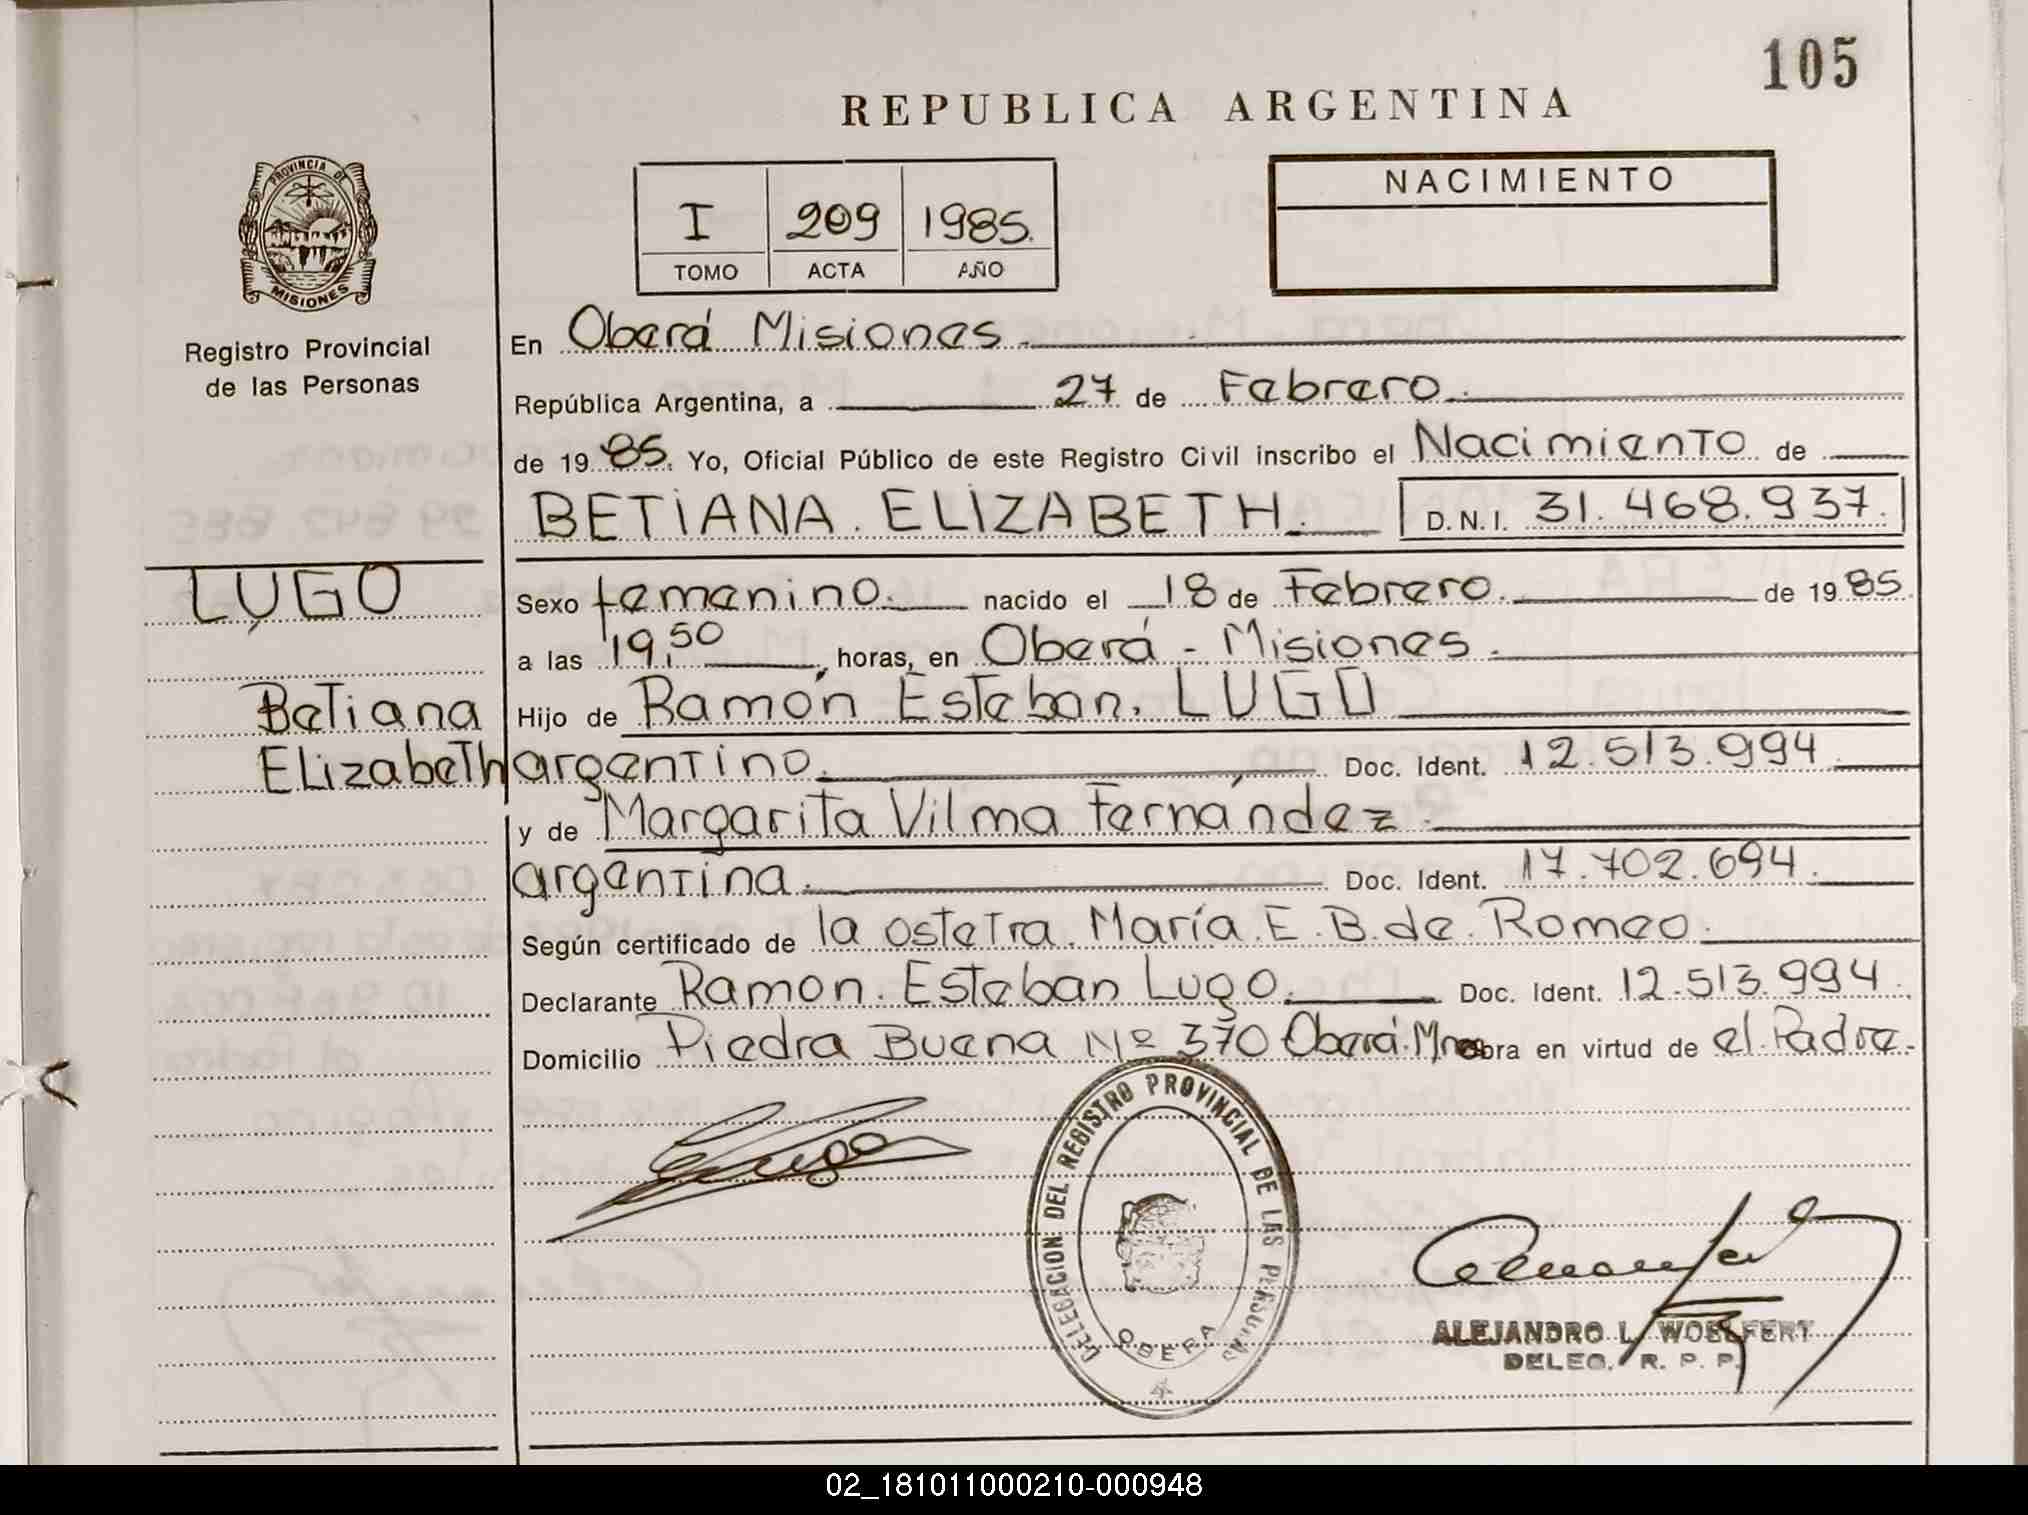 105
REPUBLICA ARGENTINA
PROVINCIA DE
MISIONES
Registro Provincial
de las Personas
I 209 1985.
TOMO ACTA AÑO
NACIMIENTO
En Oberá Misiones.
República Argentina, a 27 de Febrero.
de 19 85. Yo, Oficial Público de este Registro Civil inscribo el Nacimiento de
BETIANA. ELIZABETH. D.N.I. 31.468.937.
LUGO
Sexo femenino. nacido el 18 de Febrero. de 19 85
a las 19,50 horas, en Oberá - Misiones.
Betiana
Hijo de Ramón Esteban. LUGO
Elizabeth
argentino. Doc. Ident. 12.513.994
y de Margarita Vilma Fernández.
argentina. Doc. Ident. 17.702.694.
Según certificado de la ostetra. María.E.B.de.Romeo.
Declarante Ramon. Esteban Lugo. Doc. Ident. 12.513.994.
Domicilio Piedra Buena Nº 370 Oberá.Mnes obra en virtud de el.Padre.
Lugo
DELEGACION DEL REGISTRO PROVINCIAL DE LAS PERSONAS
OBERA
ALEJANDRO L. WOELFERT
DELEG. R. P. P.
02_181011000210-000948